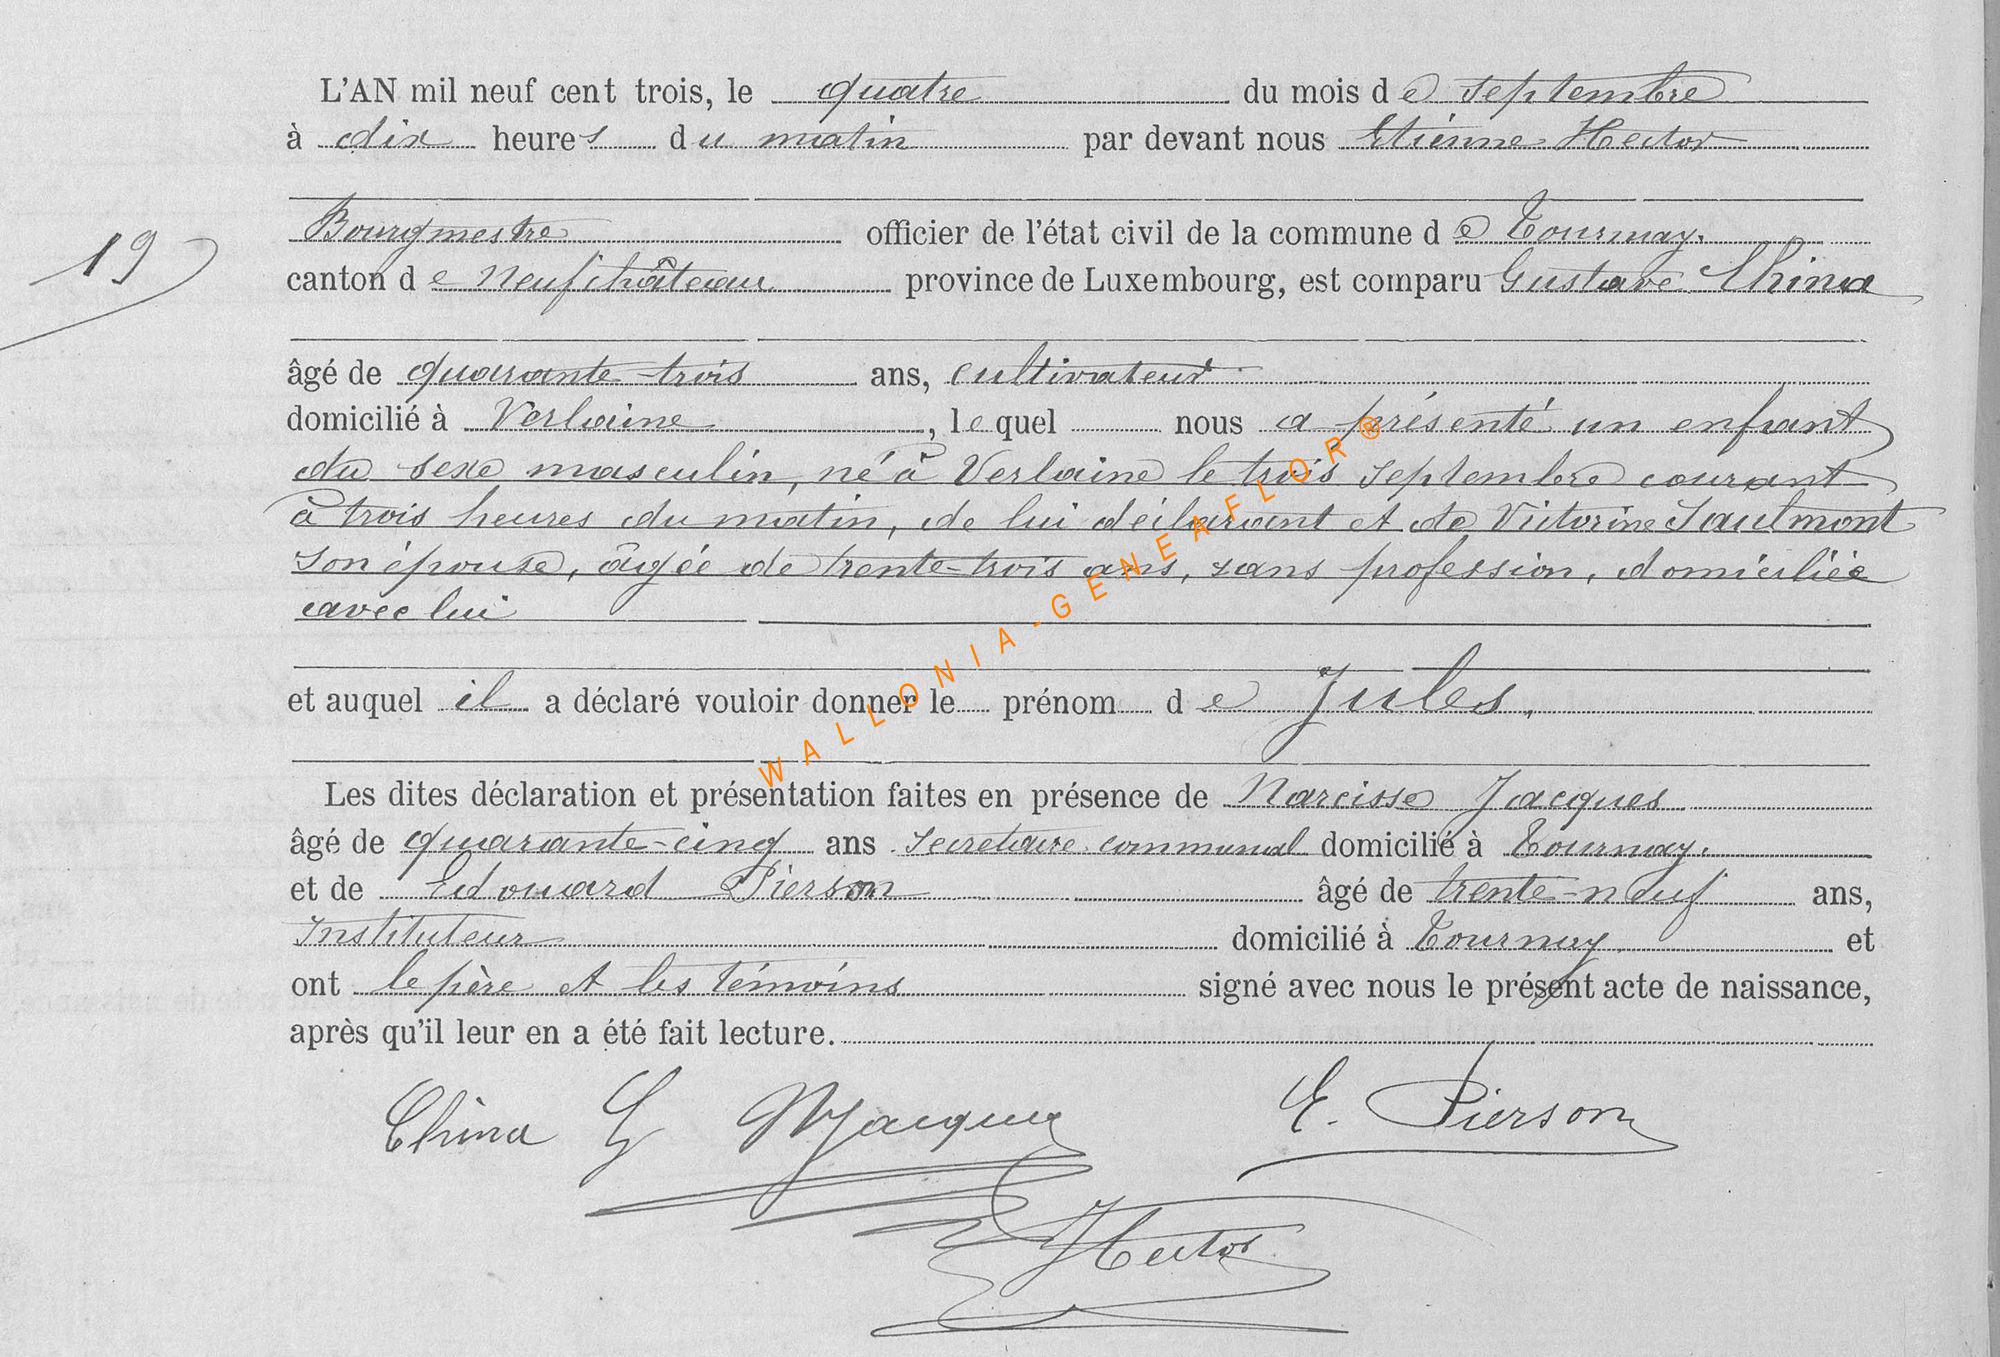 L'AN mil neuf cent trois, le quatre du mois de septembre
à dix heures du matin par devant nous Etienne Hector
Bourgmestre officier de l'état civil de la commune de Tournay.
19
canton de Neufchâteau province de Luxembourg, est comparu Gustave China
âgé de quarante-trois ans, cultivateur
domicilié à Verlaine, lequel nous a présenté un enfant
du sexe masculin, né à Verlaine le trois septembre courant
à trois heures du matin, de lui déclarant et de Victorine Saulmont
son épouse, âgée de trente-trois ans, sans profession, domiciliée
avec lui
et auquel il a déclaré vouloir donner le prénom de Jules.
Les dites déclaration et présentation faites en présence de Narcisse Jacques
âgé de quarante-cinq ans Secrétaire communal domicilié à Tournay.
et de Edouard Pierson âgé de trente-neuf ans,
Instituteur domicilié à Tournay. et
ont le père et les témoins signé avec nous le présent acte de naissance,
après qu'il leur en a été fait lecture.
China G NJacques E. Pierson
Hector
WALLONIA-GENEAFLOR®